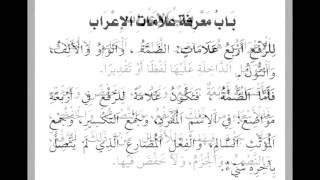 بَابُ مَعْرِفَةِ عَلَامَاتِ الإِعْرَابِ
لِلرَّفْعِ أَرْبَعُ عَلَامَاتٍ: الضَّمَّةُ، وَالْوَاوُ وَالْأَلِفُ،
وَالنُّونُ. الدَّاخِلَةِ عَلَيْهَا لَفْظًا أَوْ تَقْدِيرًا.
فَأَمَّا الضَّمَّةُ فَتَكُونُ عَلَامَةً لِلرَّفْعِ فِي أَرْبَعَةِ
مَوَاضِعَ: فِي الِاسْمِ الْمُفْرَدِ، وَجَمْعِ التَّكْسِيرِ، وَجَمْعِ
الْمُؤَنَّثِ السَّالِمِ، وَالْفِعْلِ الْمُضَارِعِ الَّذِي لَمْ يَتَّصِلْ
بِآخِرِهِ شَيْءٌ. وَالْجَزْمُ، وَلَا خَفْضَ فِيهَا.